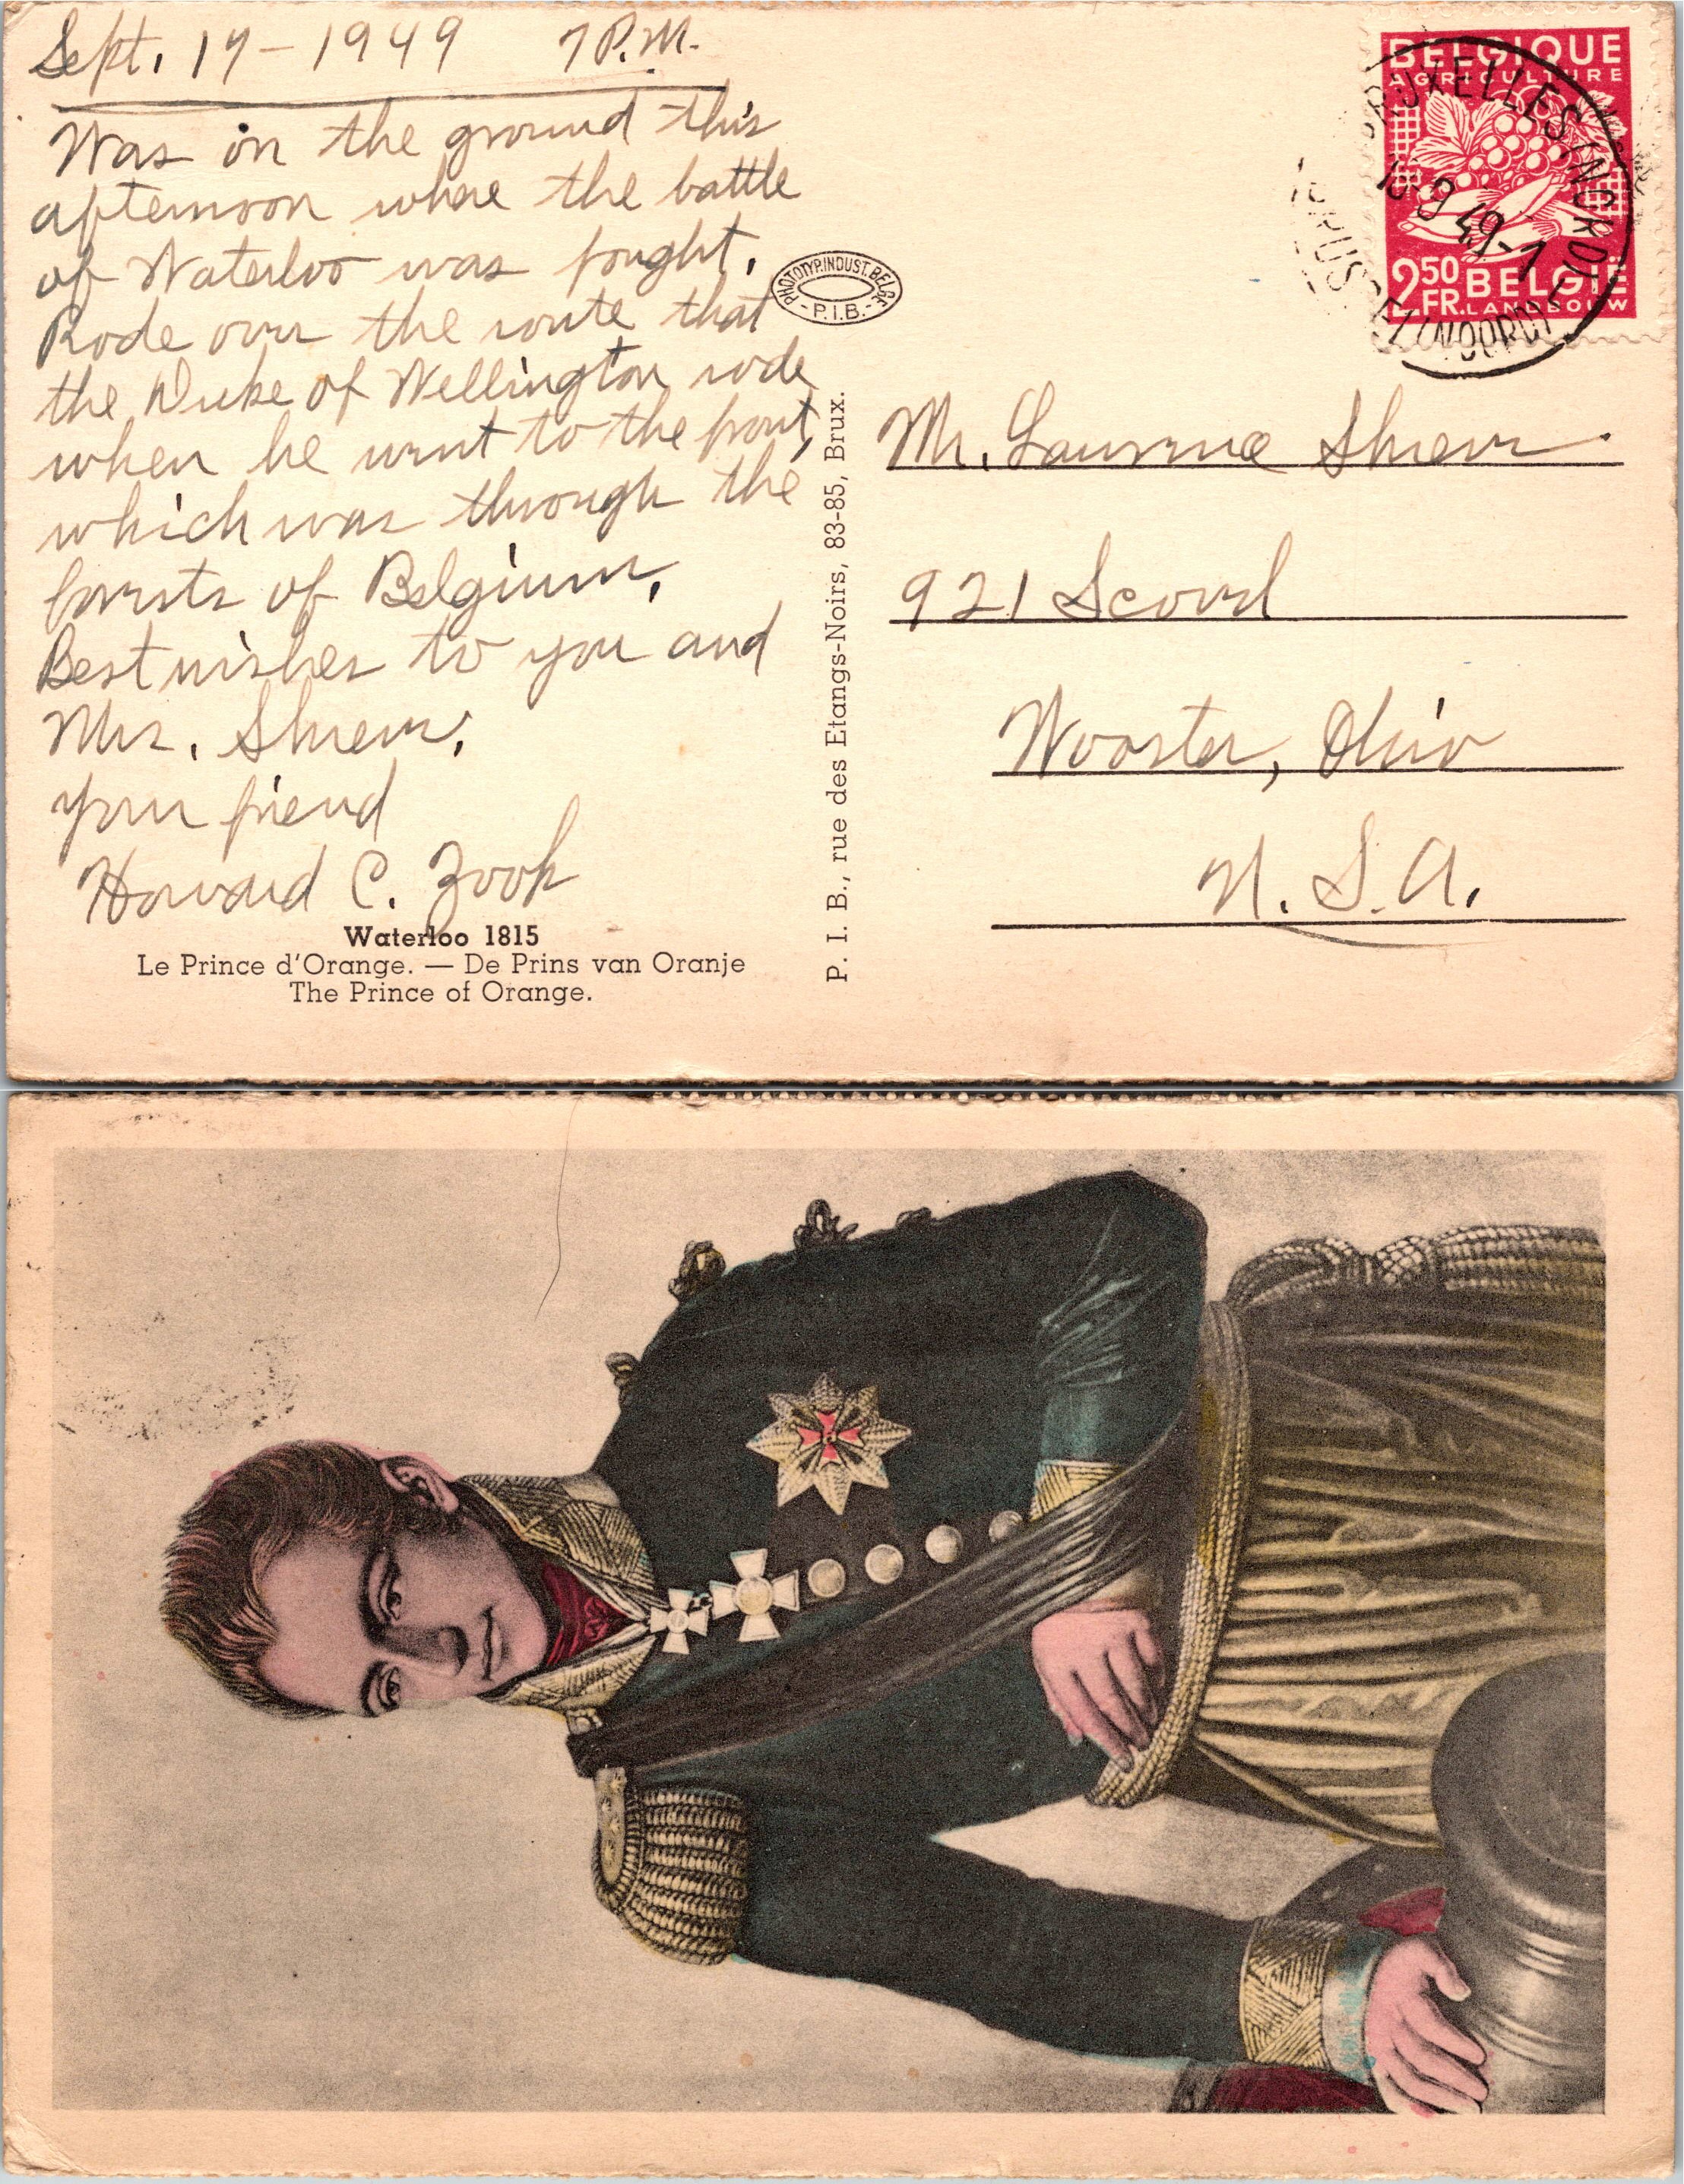 Sept. 14 - 1949 7 P.M.
Was on the ground this
afternoon where the battle
of Waterloo was fought.
Rode over the route that
the Duke of Wellington rode
when he went to the front,
which was through the
forests of Belgium.
Best wishes to you and
Mrs. Shrever.
your friend
Howard C. Zook
Waterloo 1815
Le Prince d'Orange. — De Prins van Oranje
The Prince of Orange.
PHOTOTYP. INDUST. BELGE
- P.I.B. -
P. I. B., rue des Etangs-Noirs, 83-85, Brux.
BELGIQUE
AGRICULTURE
2.50 FR. BELGIË
LANDBOUW
BRUXELLES (NORD)
9 49
Mr. Laurence Shrever
921 Scovel
Wooster, Ohio
U. S. A.